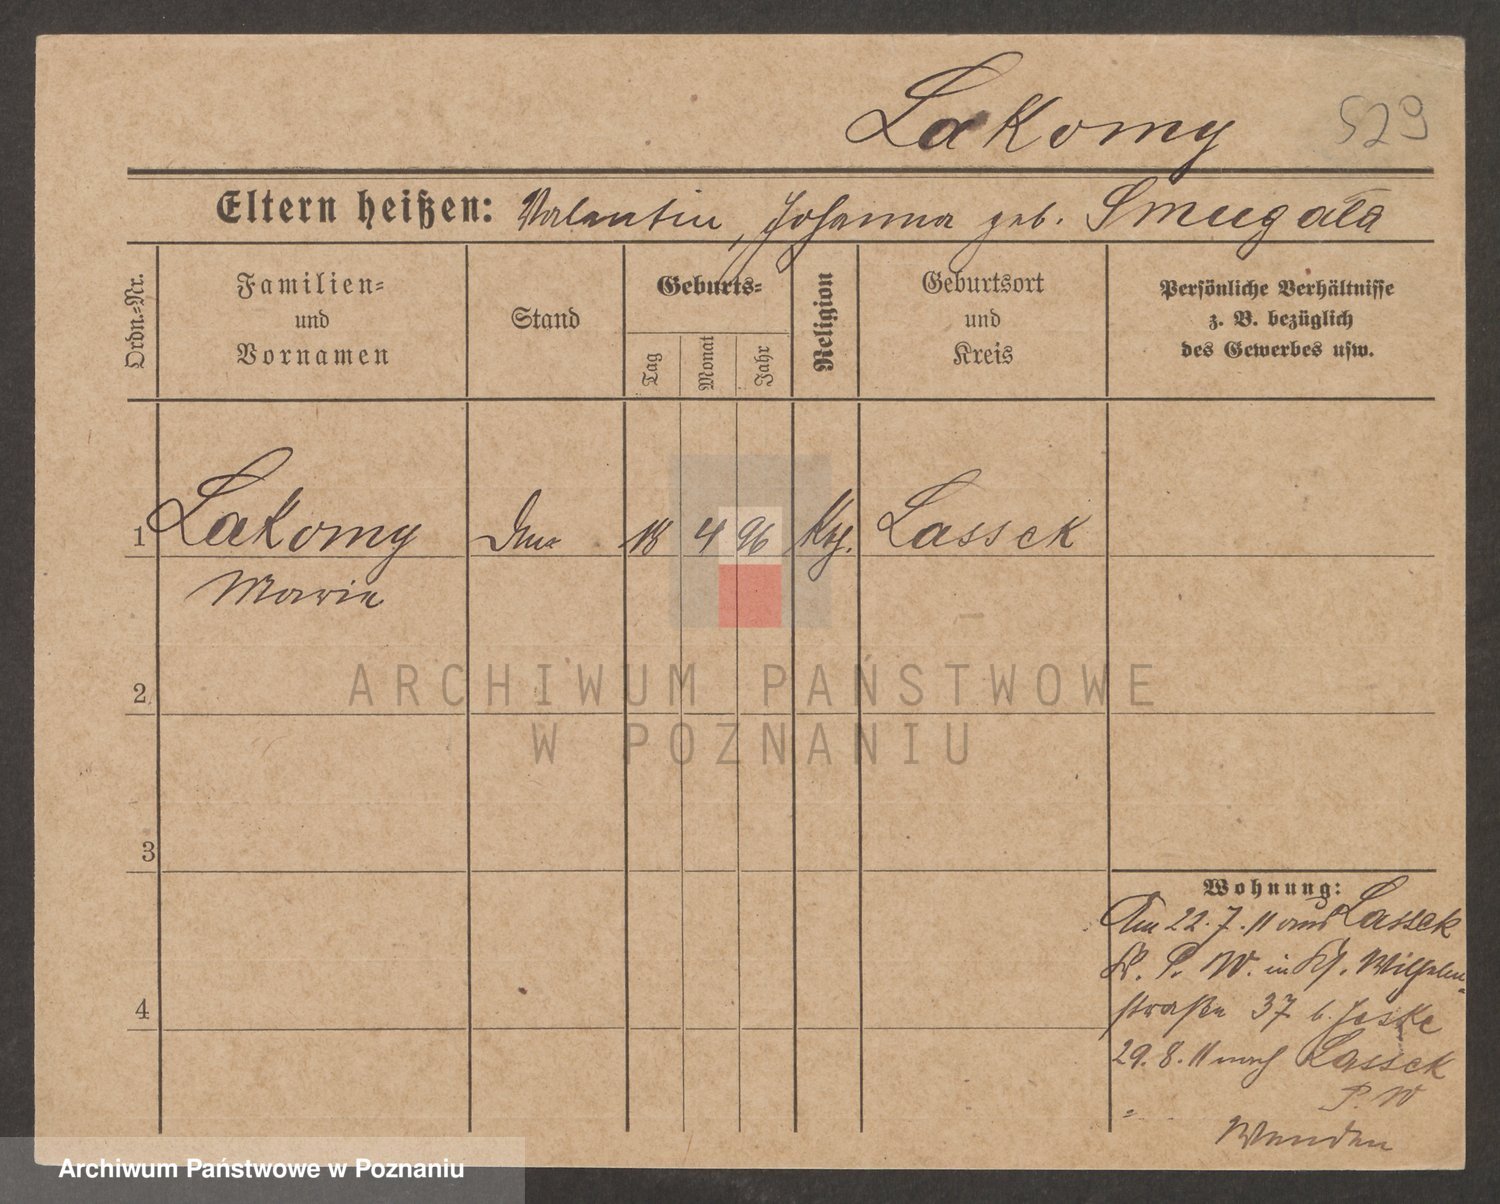 Lakomy 529
Eltern heißen: Valentin, Johanna geb. Smugała
Ordn.-Nr.
Familien-
und
Vornamen
Stand
Geburts-
Tag
Monat
Jahr
Religion
Geburtsort
und
Kreis
Persönliche Verhältnisse
z. B. bezüglich
des Gewerbes usw.
1 Lakomy 18 4 96 Kth. Lassek
Marie
2
3
4
Wohnung:
Am 22.7.11 aus Lassek
Kr. P. W. in Kl. Wilhelm-
straße 37 b. Jeske
29.8.11 nach Lassek
P. W
Wenden
ARCHIWUM PAŃSTWOWE
W POZNANIU
Archiwum Państwowe w Poznaniu